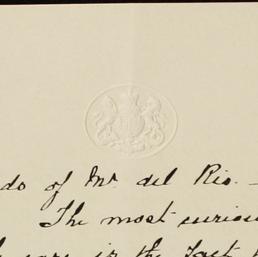 do of Mr. del Rio. —
The most curious
is the fact